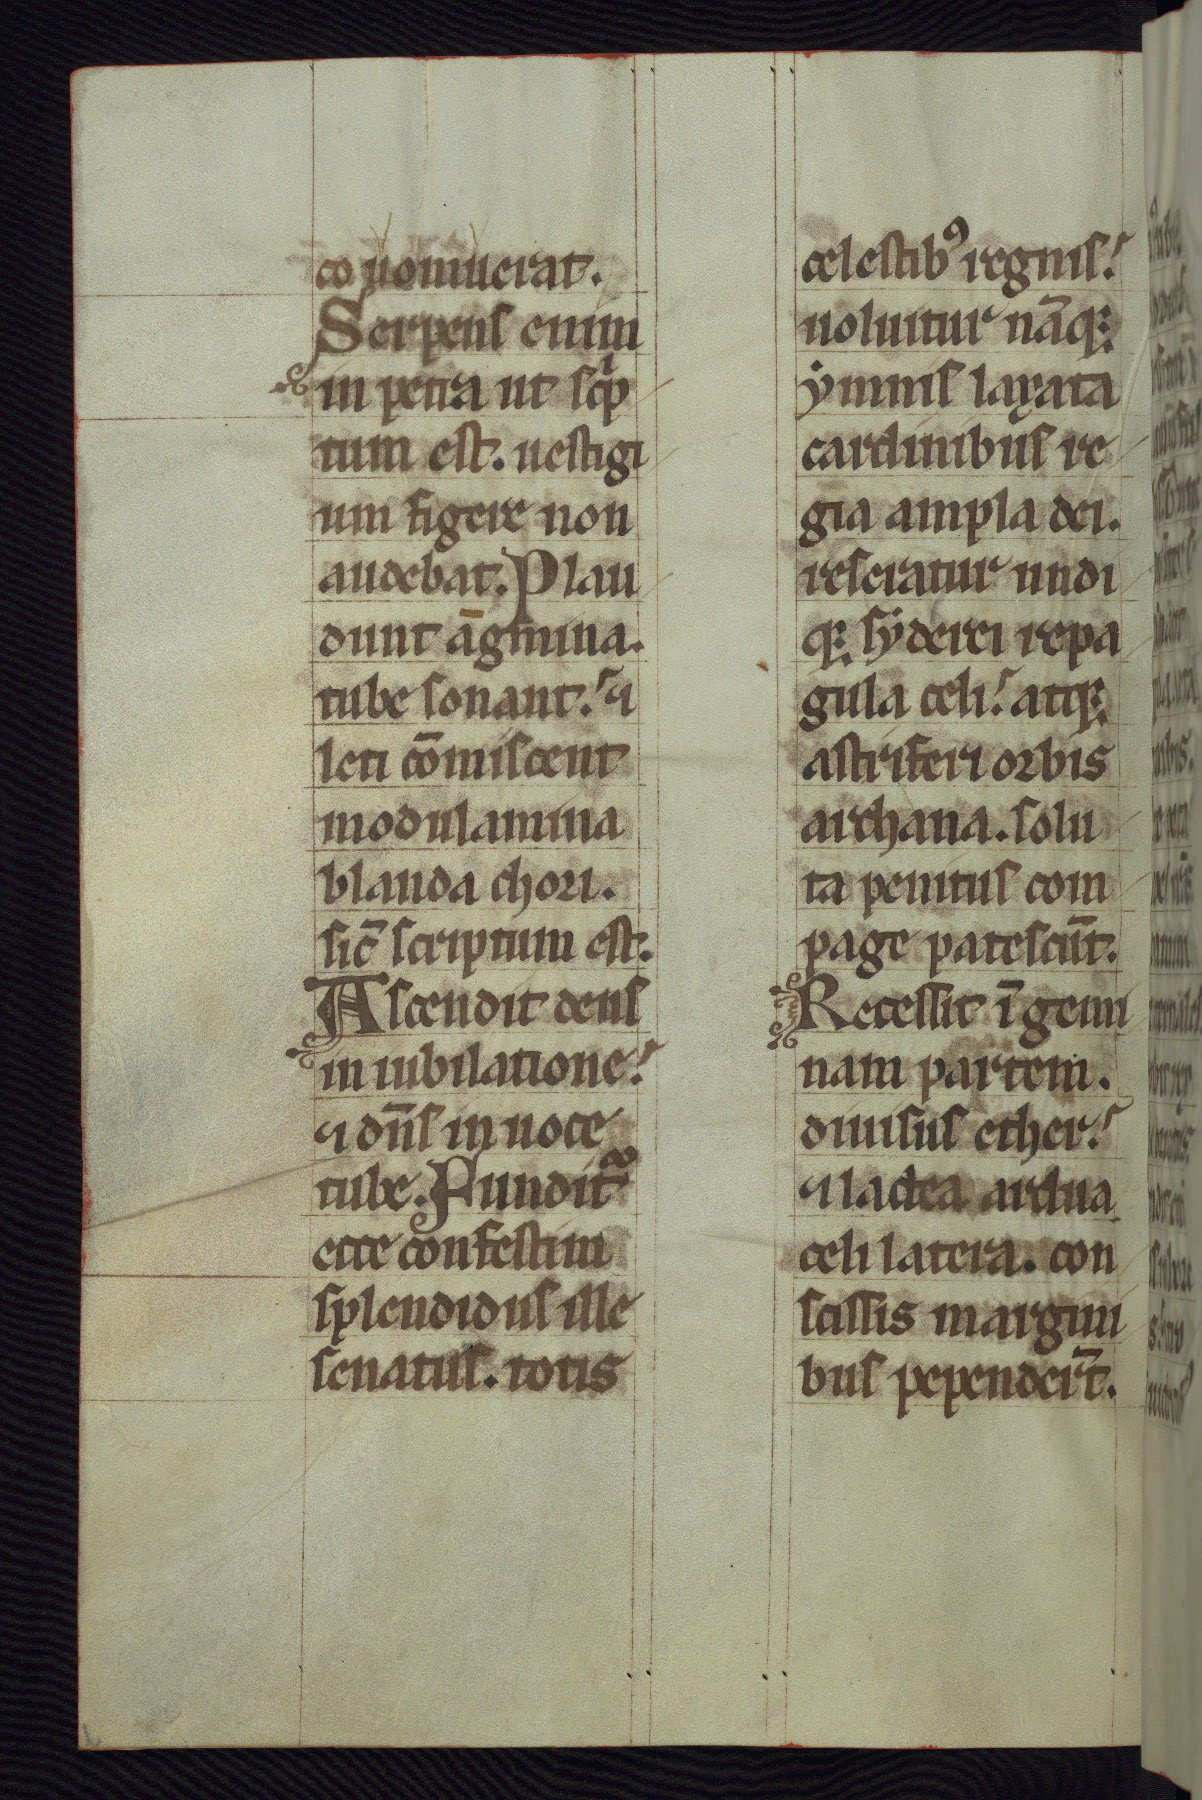 co uomuerat.
Serpens enim
in petra ut scͥp
tum est. uestigi
um figere non
audebat. Plau
dunt āgmina.
tube sonant. ⁊
leti cōmiscent
modulamina
blanda chori.
sic̄ scriptum est.
Ascendit deus
in iubilatione.
⁊ dn̄s in uoce
tube. Fundit᷑
ecce confestim
splendidus ille
senatus. totis
celestibꝰ regnis.
uoluitur nāqꝫ
ẏmnis laxata
cardinibus re
gia ampla dei.
reseratur undi
qꝫ sẏderei repa
gula celi. atqꝫ
astriferi orbis
archana. solu
ta penitus com
page patescūt.
Recessit ī gemi
nam partem.
diuisus ether.
⁊ lactea ardua
celi latera. con
scissis margini
bus pependert̄.